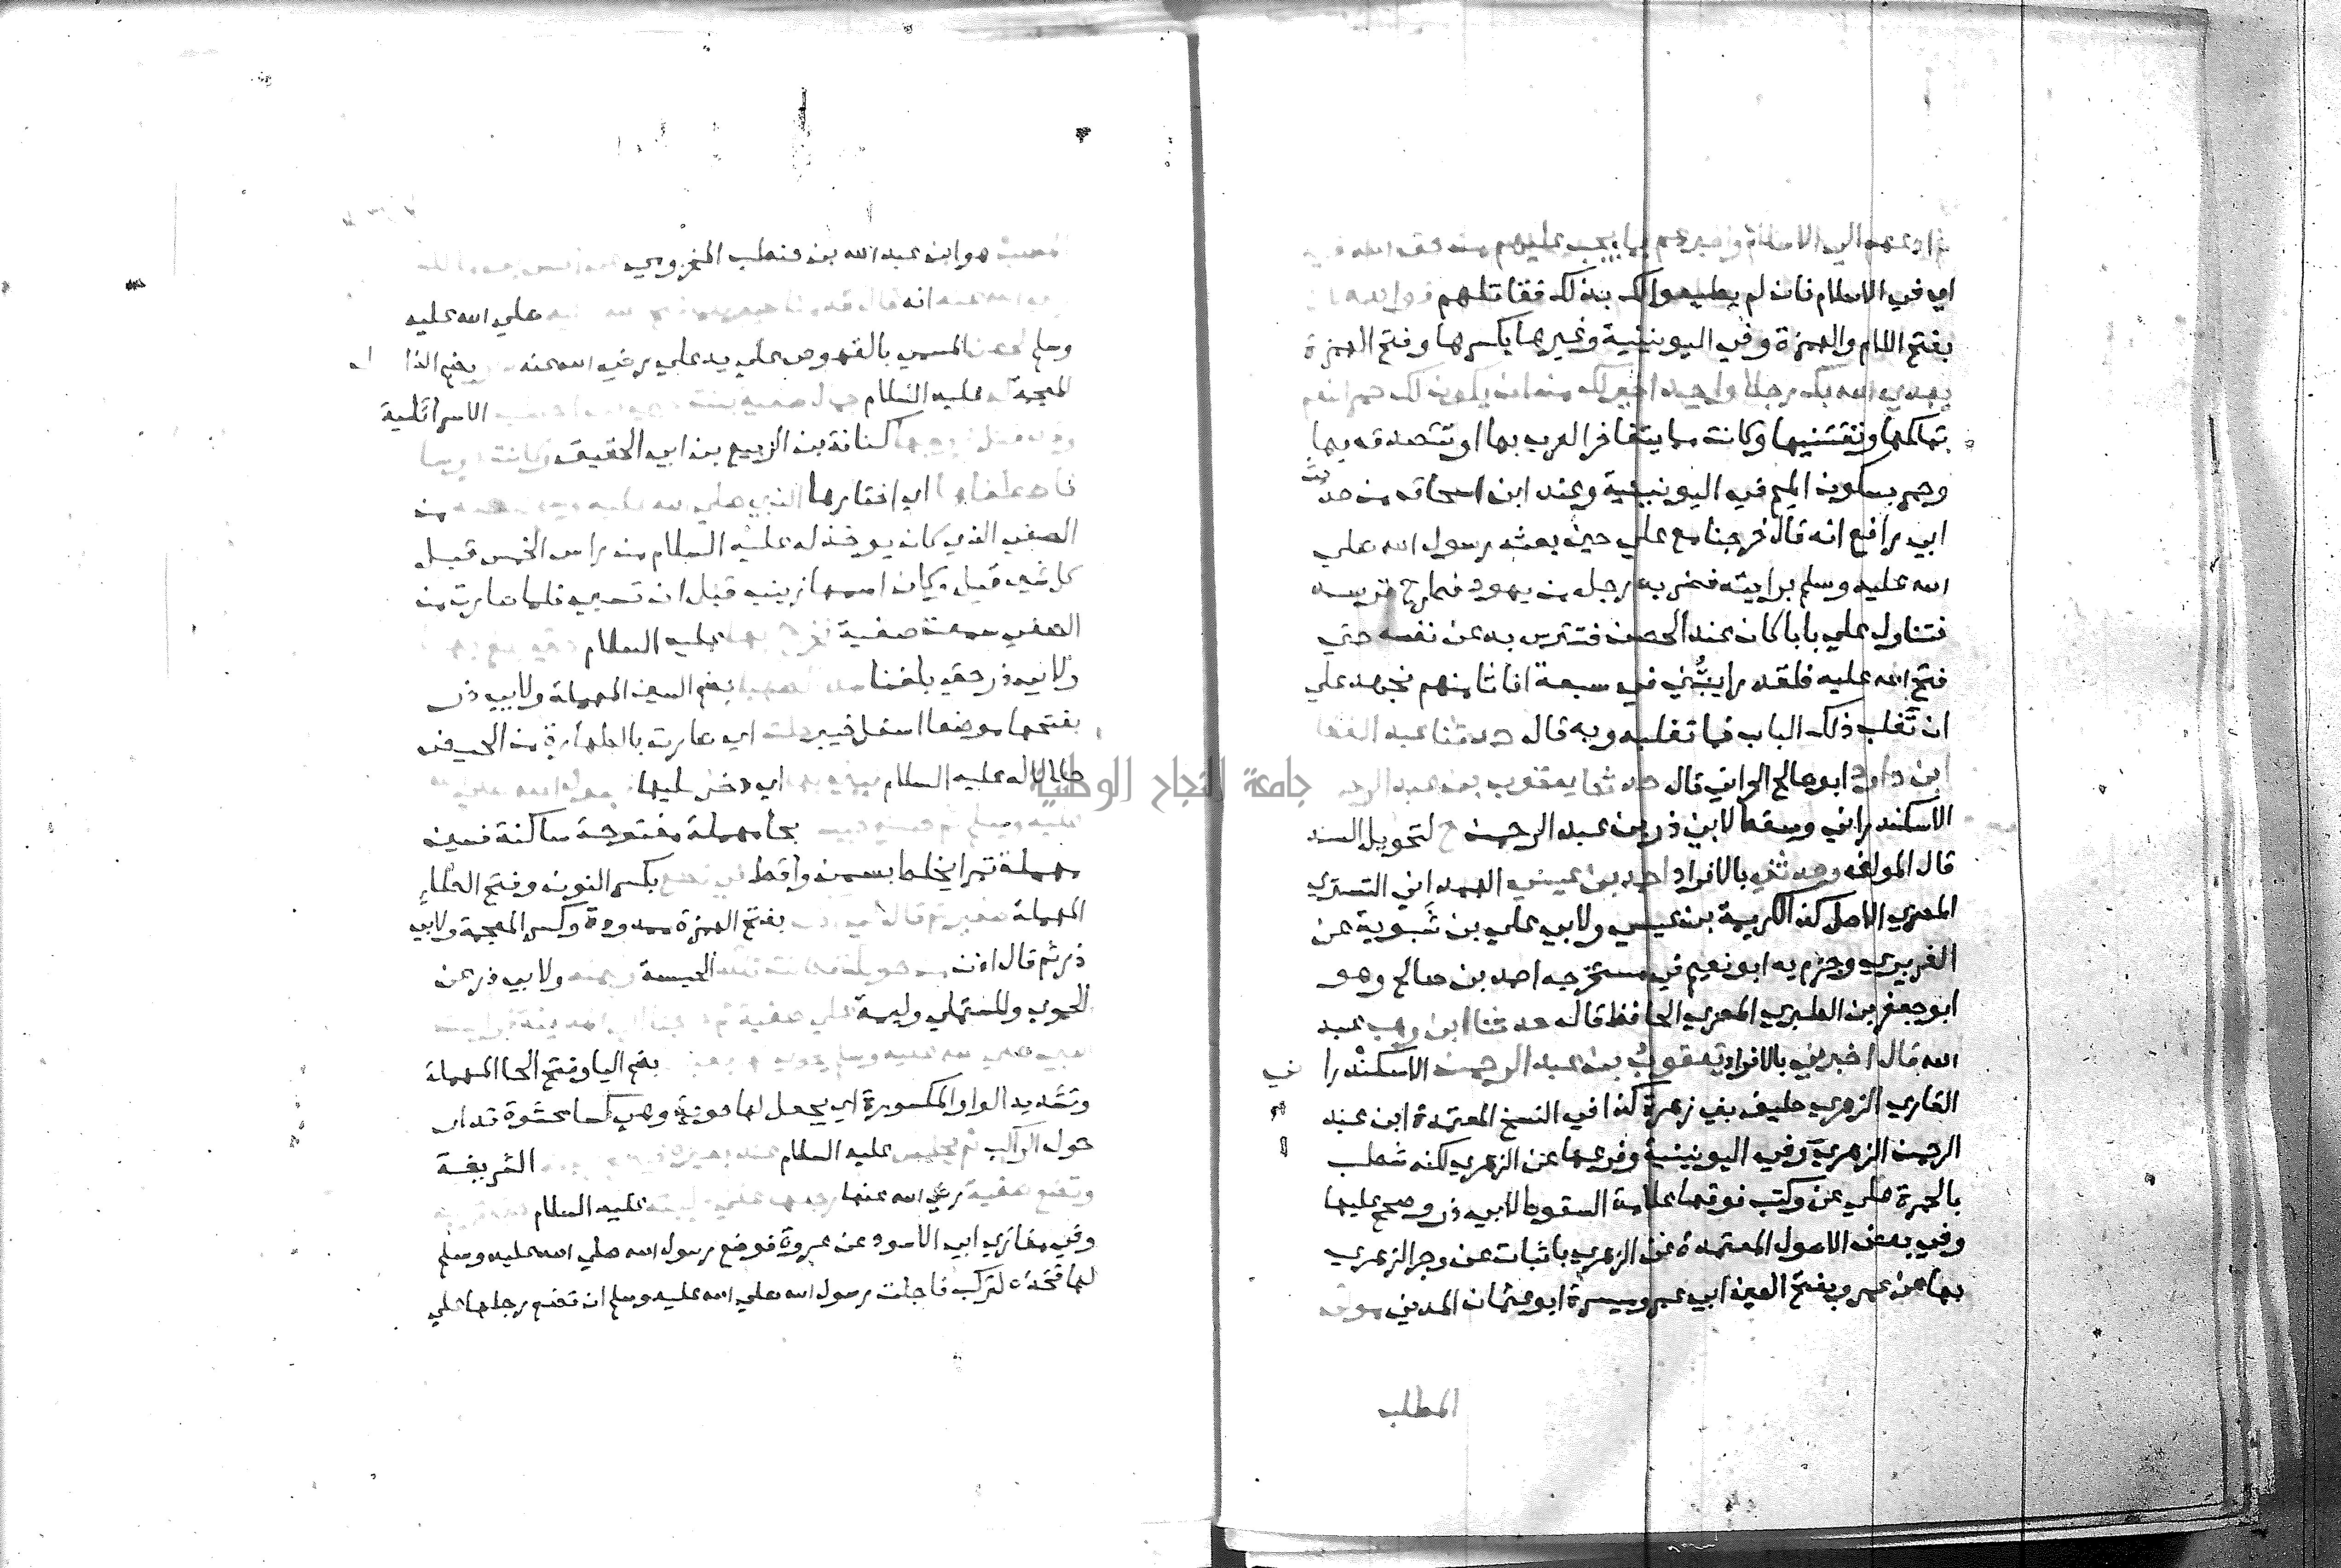 ثم ادعهم الي الاسلام واخبرهم بما يجب عليهم من حق الله فيه
اي في الاسلام فان لم يطيعوا لك بذلك فقاتلهم فوالله لان
بفتح اللام والهمزة وفي اليونينية وغيرها بكسرها وفتح الهمزة
يهدي الله بك رجلا واحدا خير لك من ان يكون لك حمر النعم
تملكها وتقتنيها وكانت مما يتفاخر العرب بها او تتصدق بها
وحمر بسكون الميم في اليونينية وعند ابن اسحاق من حديث
ابي رافع انه قال خرجنا مع علي حين بعثه رسول الله صلي
الله عليه وسلم برايته فضربه رجل من يهود فطرح ترسه
فتناول علي بابا كان عند الحصن فتترس به عن نفسه حتي
فتح الله عليه فلقد رايتني في سبعة انا ثامنهم نجهد علي
ان نقلب ذلك الباب فما نقلبه وبه قال حدثنا عبد الغفا
ابن داود ابو صالح الحراني قال حدثنا يعقوب بن عبد الرحمن
الاسكندراني وسقط لابن ذر بن عبد الرحمن ح لتحويل السند
قال المولف وحدثني بالافراد احمد بن عيسي الهمداني التستري
المصري الاصل كذا لكريمة بن عيسي ولابي علي بن شبوية عن
الفربري وجزم به ابو نعيم في مستخرجه احمد بن صالح وهو
ابو جعفر بن الطبري المصري الحافظ قال حدثنا ابن وهب عبد
الله قال اخبرني بالافراد يعقوب بن عبد الرحمن الاسكندرا ني
القاري الزهري حليف بني زهرة كذا في النسخ المعتمدة ابن عبد
الرحمن الزهري وفي اليونينية وفرعها عن الزهري لكنه شطب
بالحمرة علي عن وكتب فوقها علامة السقوط لابي ذر وصحح عليها
وفي بعض الاصول المعتمدة عن الزهري باثبات عن وجر الزهري
بها عن عمرو بفتح العين ابي عمرو ميسرة ابو عثمان المدني موله
المطلب
هو ابن عبد الله بن حنطب المخزومي
انه قال صلي الله عليه
وسلم الحصن المسمي بالقموص علي يد علي رضي الله عنه بضم الذا ل
المعجمة له عليه السلام جمال صفية بنت الاسرائلية
وقد قتل زوجها كنانة بن الربيع بن ابي الحقيق وكانت عروسا
فاصطفاها اي اختارها النبي صلي الله عليه وسلم لنفسه من
الصفي الذي كان يوخذ له عليه السلام من راس الخمس قبل
كل شي قيل وكان اسمها زينب قبل ان تسبي فلما صارت من
الصفي سميت صفية فخرج بها عليه السلام
ولابي ذر حتي بلغنا سد الصهبا بضم السين المهملة ولابي ذر
بفتحها موضعا اسفل خيبر حلت اي صارت بالطهارة من الحيض
حلالا له عليه السلام اي دخل عليها رسول الله صلي الله
عليه وسلم ثم صنع بحا مهملة مفتوحة ساكنة فسين
مهملة تمرا يخلط بسمن واقط في نطع بكسر النون وفتح الطاء
المهملة صغير ثم قال لي بفتح الهمزة ممدودة وكسر المعجمة ولابي
ذر ثم قال اذن من حولك فكانت تلك الحيسة وليمته ولابي ذر عن
الحموي والمستملي وليمة علي صفية ثم خرجنا الي المدينة فرايت
النبي صلي الله عليه وسلم يحوي لها بضم اليا وفتح الحا المهملة
وتشديد الواو المكسورة اي يجعل لها حوية وهي كسا محشوة تدار
حول الراكب ثم يجلس عليه السلام عند بعيره الشريفة
وتضع صفية رضي الله عنها رجلها علي ركبته عليه السلام
وفي مغازي ابي الاسود عن عروة فوضع رسول الله صلي الله عليه وسلم
لها فخذه لتركب فاجلت رسول الله صلي الله عليه وسلم ان تضع رجلها علي
جامعة النجاح الوطنية